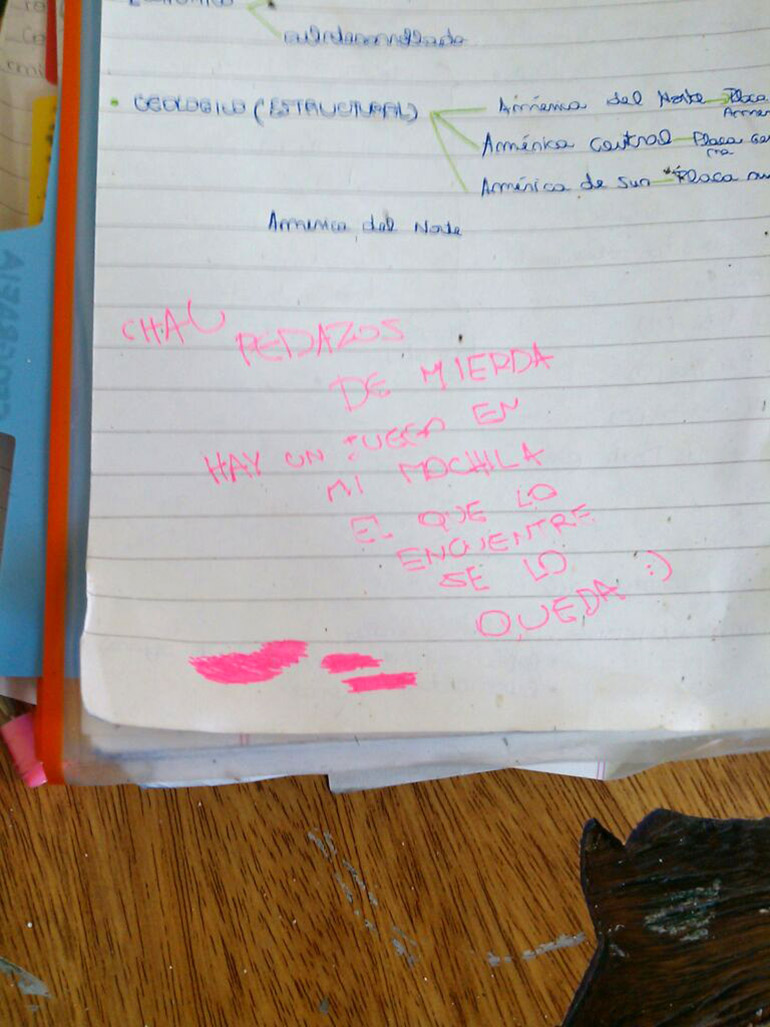 subdesarrollado
• GEOLOGICO (ESTRUCTURAL)
América del Norte Placa
América Central Placa
América de sur Placa
America del Norte
CHAU
PEDAZOS
DE MIERDA
HAY UN JUEGO EN
MI MOCHILA
EL QUE LO
ENCUENTRE
SE LO
QUEDA :)